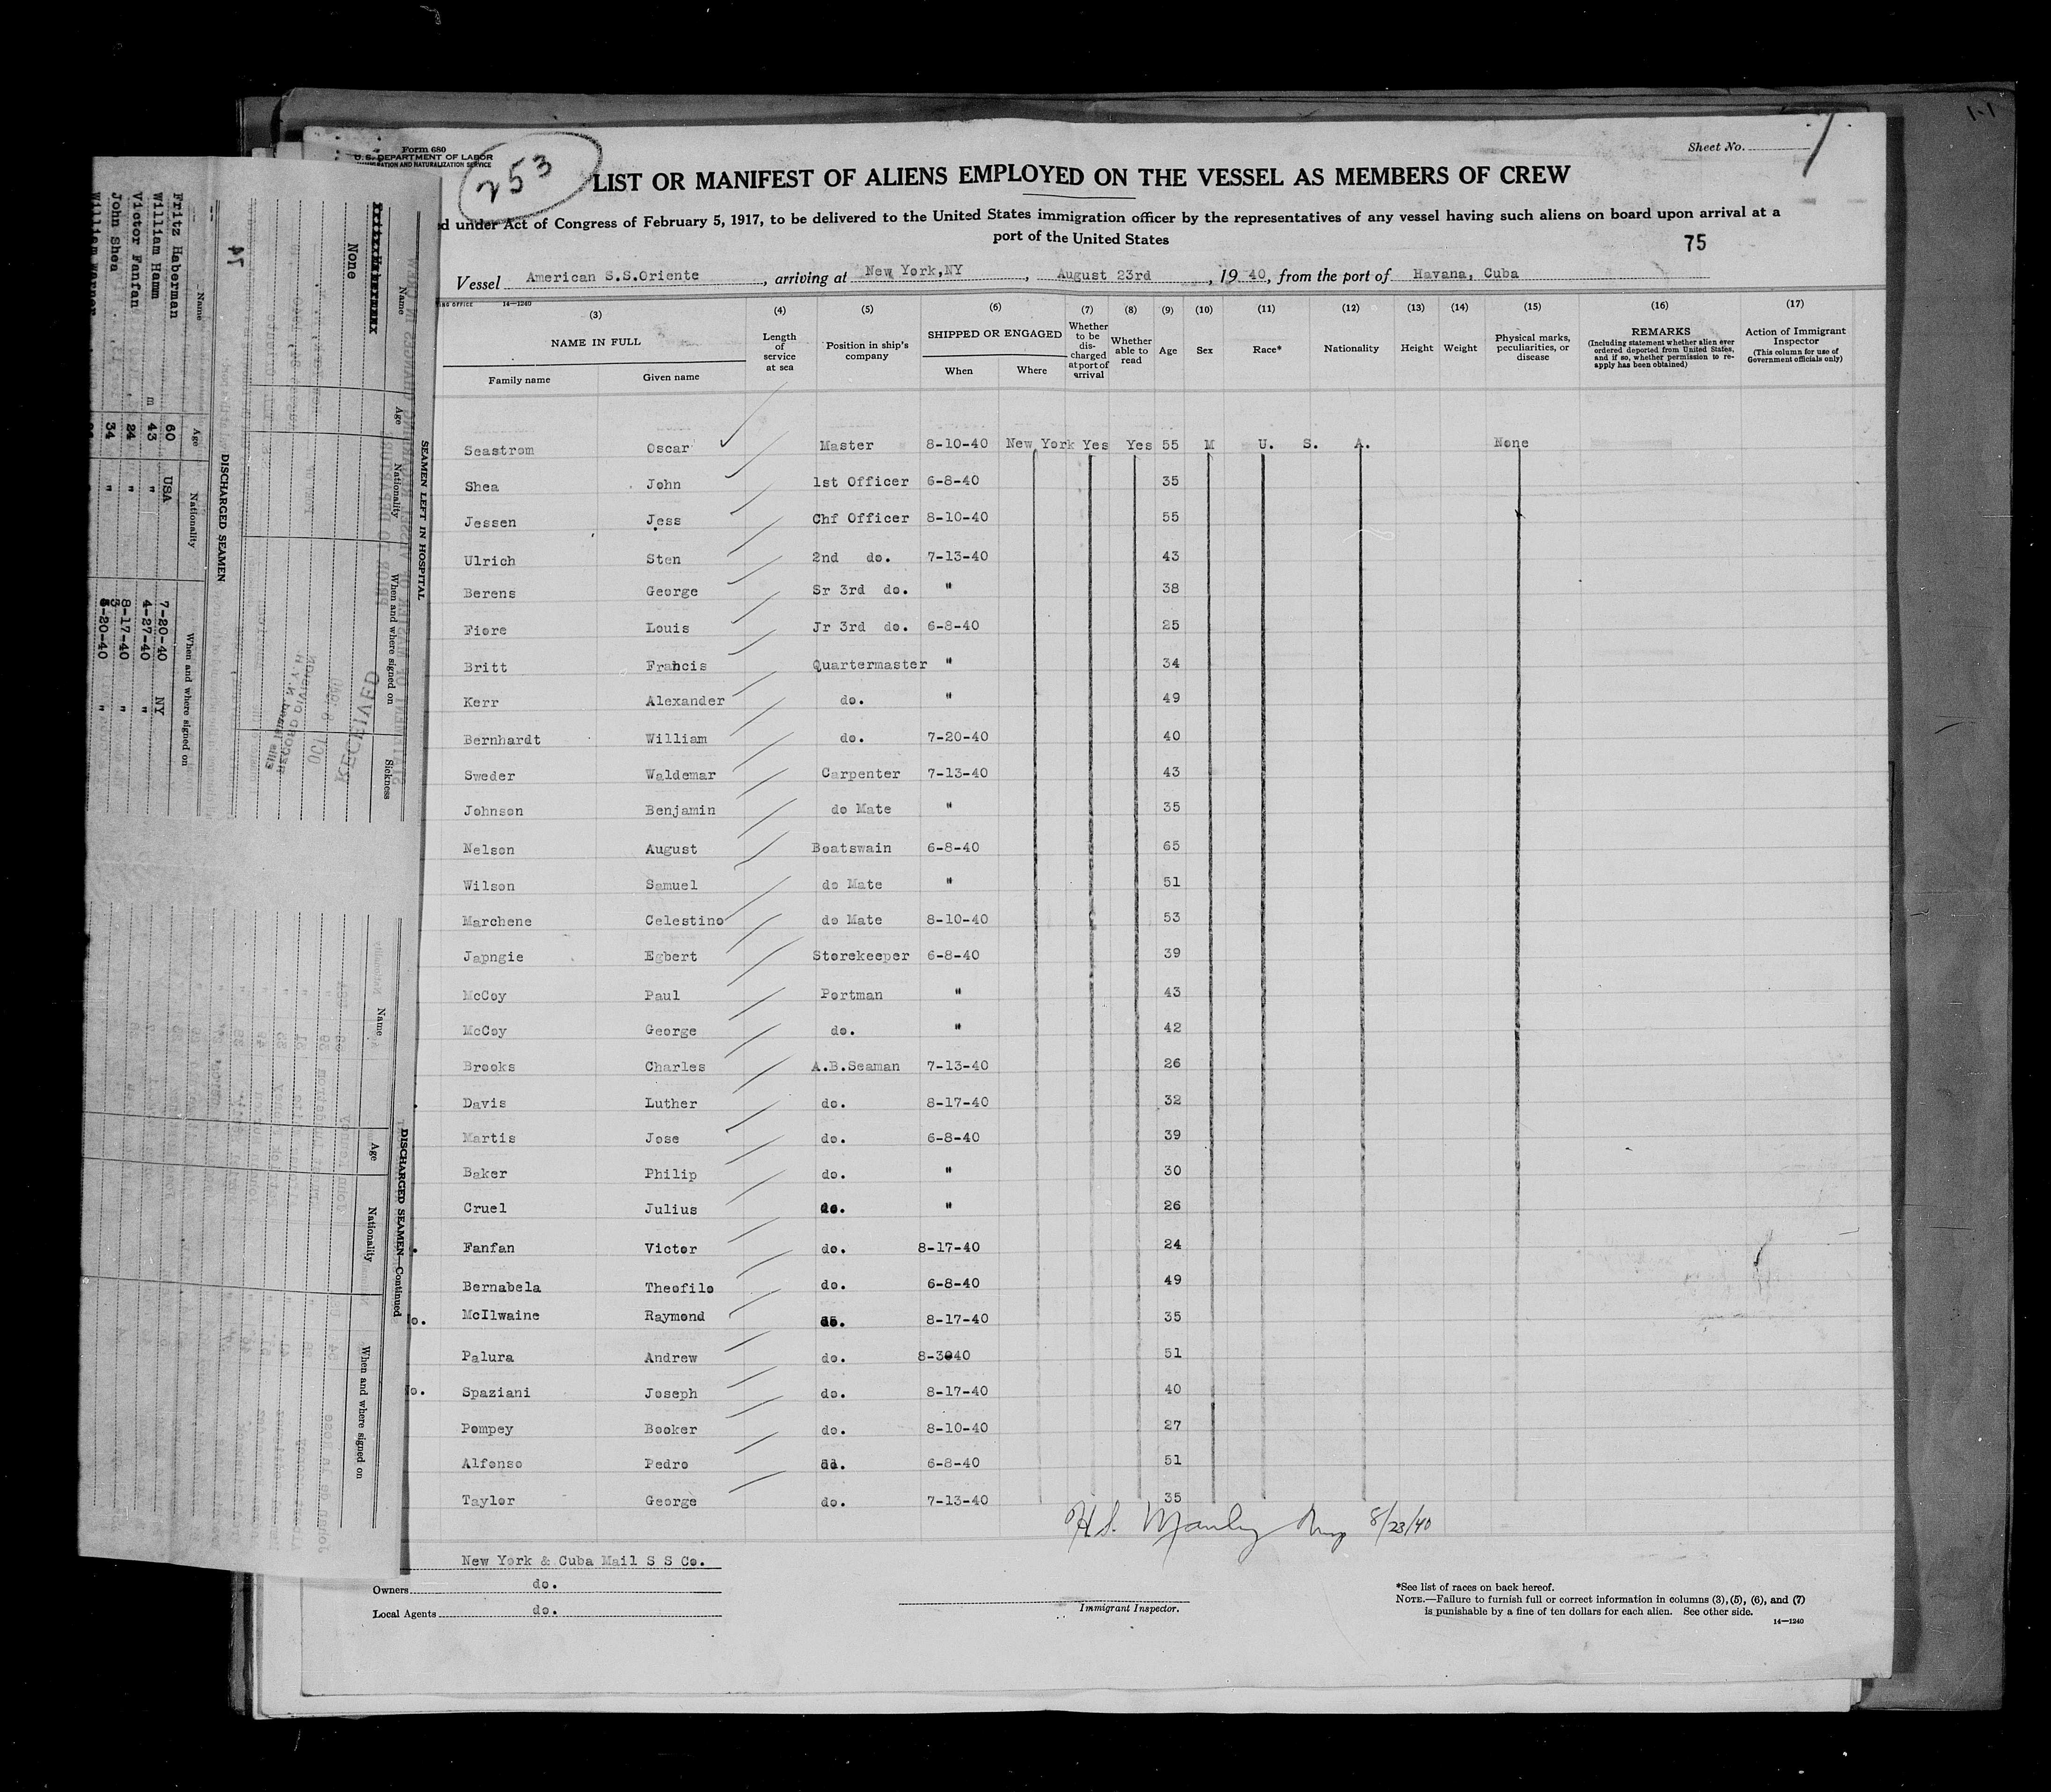 Form 680
U. S. DEPARTMENT OF LABOR
IMMIGRATION AND NATURALIZATION SERVICE
253
Sheet No.
LIST OR MANIFEST OF ALIENS EMPLOYED ON THE VESSEL AS MEMBERS OF CREW
under Act of Congress of February 5, 1917, to be delivered to the United States immigration officer by the representatives of any vessel having such aliens on board upon arrival at a
port of the United States
75
Vessel American S.S.Oriente, arriving at New York,NY, August 23rd, 19 40, from the port of Havana, Cuba
14—1240
(3) (4) (5) (6) (7) (8) (9) (10) (11) (12) (13) (14) (15) (16) (17)
NAME IN FULL
Family name Given name
Length of service at sea
Position in ship's company
SHIPPED OR ENGAGED
When Where
Whether to be discharged at port of arrival
Whether able to read
Age
Sex
Race*
Nationality
Height
Weight
Physical marks, peculiarities, or disease
REMARKS
(Including statement whether alien ever ordered deported from United States, and if so, whether permission to re-apply has been obtained)
Action of Immigrant Inspector
(This column for use of Government officials only)
Seastrom Oscar Master 8-10-40 New York Yes Yes 55 M U. S. A. None
Shea John 1st Officer 6-8-40 35
Jessen Jess Chf Officer 8-10-40 55
Ulrich Sten 2nd do. 7-13-40 43
Berens George Sr 3rd do. " 38
Fiore Louis Jr 3rd do. 6-8-40 25
Britt Francis Quartermaster " 34
Kerr Alexander do. " 49
Bernhardt William do. 7-20-40 40
Sweder Waldemar Carpenter 7-13-40 43
Johnson Benjamin do Mate " 35
Nelson August Boatswain 6-8-40 65
Wilson Samuel do Mate " 51
Marchene Celestino do Mate 8-10-40 53
Japngie Egbert Storekeeper 6-8-40 39
McCoy Paul Portman " 43
McCoy George do. " 42
Brooks Charles A.B.Seaman 7-13-40 26
Davis Luther do. 8-17-40 32
Martis Jose do. 6-8-40 39
Baker Philip do. " 30
Cruel Julius do. " 26
Fanfan Victor do. 8-17-40 24
Bernabela Theofilo do. 6-8-40 49
McIlwaine Raymond do. 8-17-40 35
Palura Andrew do. 8-3040 51
Spaziani Joseph do. 8-17-40 40
Pompey Booker do. 8-10-40 27
Alfonso Pedro do. 6-8-40 51
Taylor George do. 7-13-40 35
8/23/40
New York & Cuba Mail S S Co.
Owners do.
Local Agents do.
Immigrant Inspector.
*See list of races on back hereof.
NOTE.—Failure to furnish full or correct information in columns (3), (5), (6), and (7)
is punishable by a fine of ten dollars for each alien. See other side.
14—1240
SEAMEN LEFT IN HOSPITAL
Name Age Nationality When and where signed on Sickness
None
RECEIVED
RECORD DIVISION
DISCHARGED SEAMEN
Name Age Nationality When and where signed on
Fritz Haberman 60 USA 7-20-40 NY
William Hamm 43 " 4-27-40 "
Victor Fanfan 24 " 8-17-40 "
John Shea 34 " -20-40 "
William
DISCHARGED SEAMEN—Continued
Name Age Nationality When and where signed on